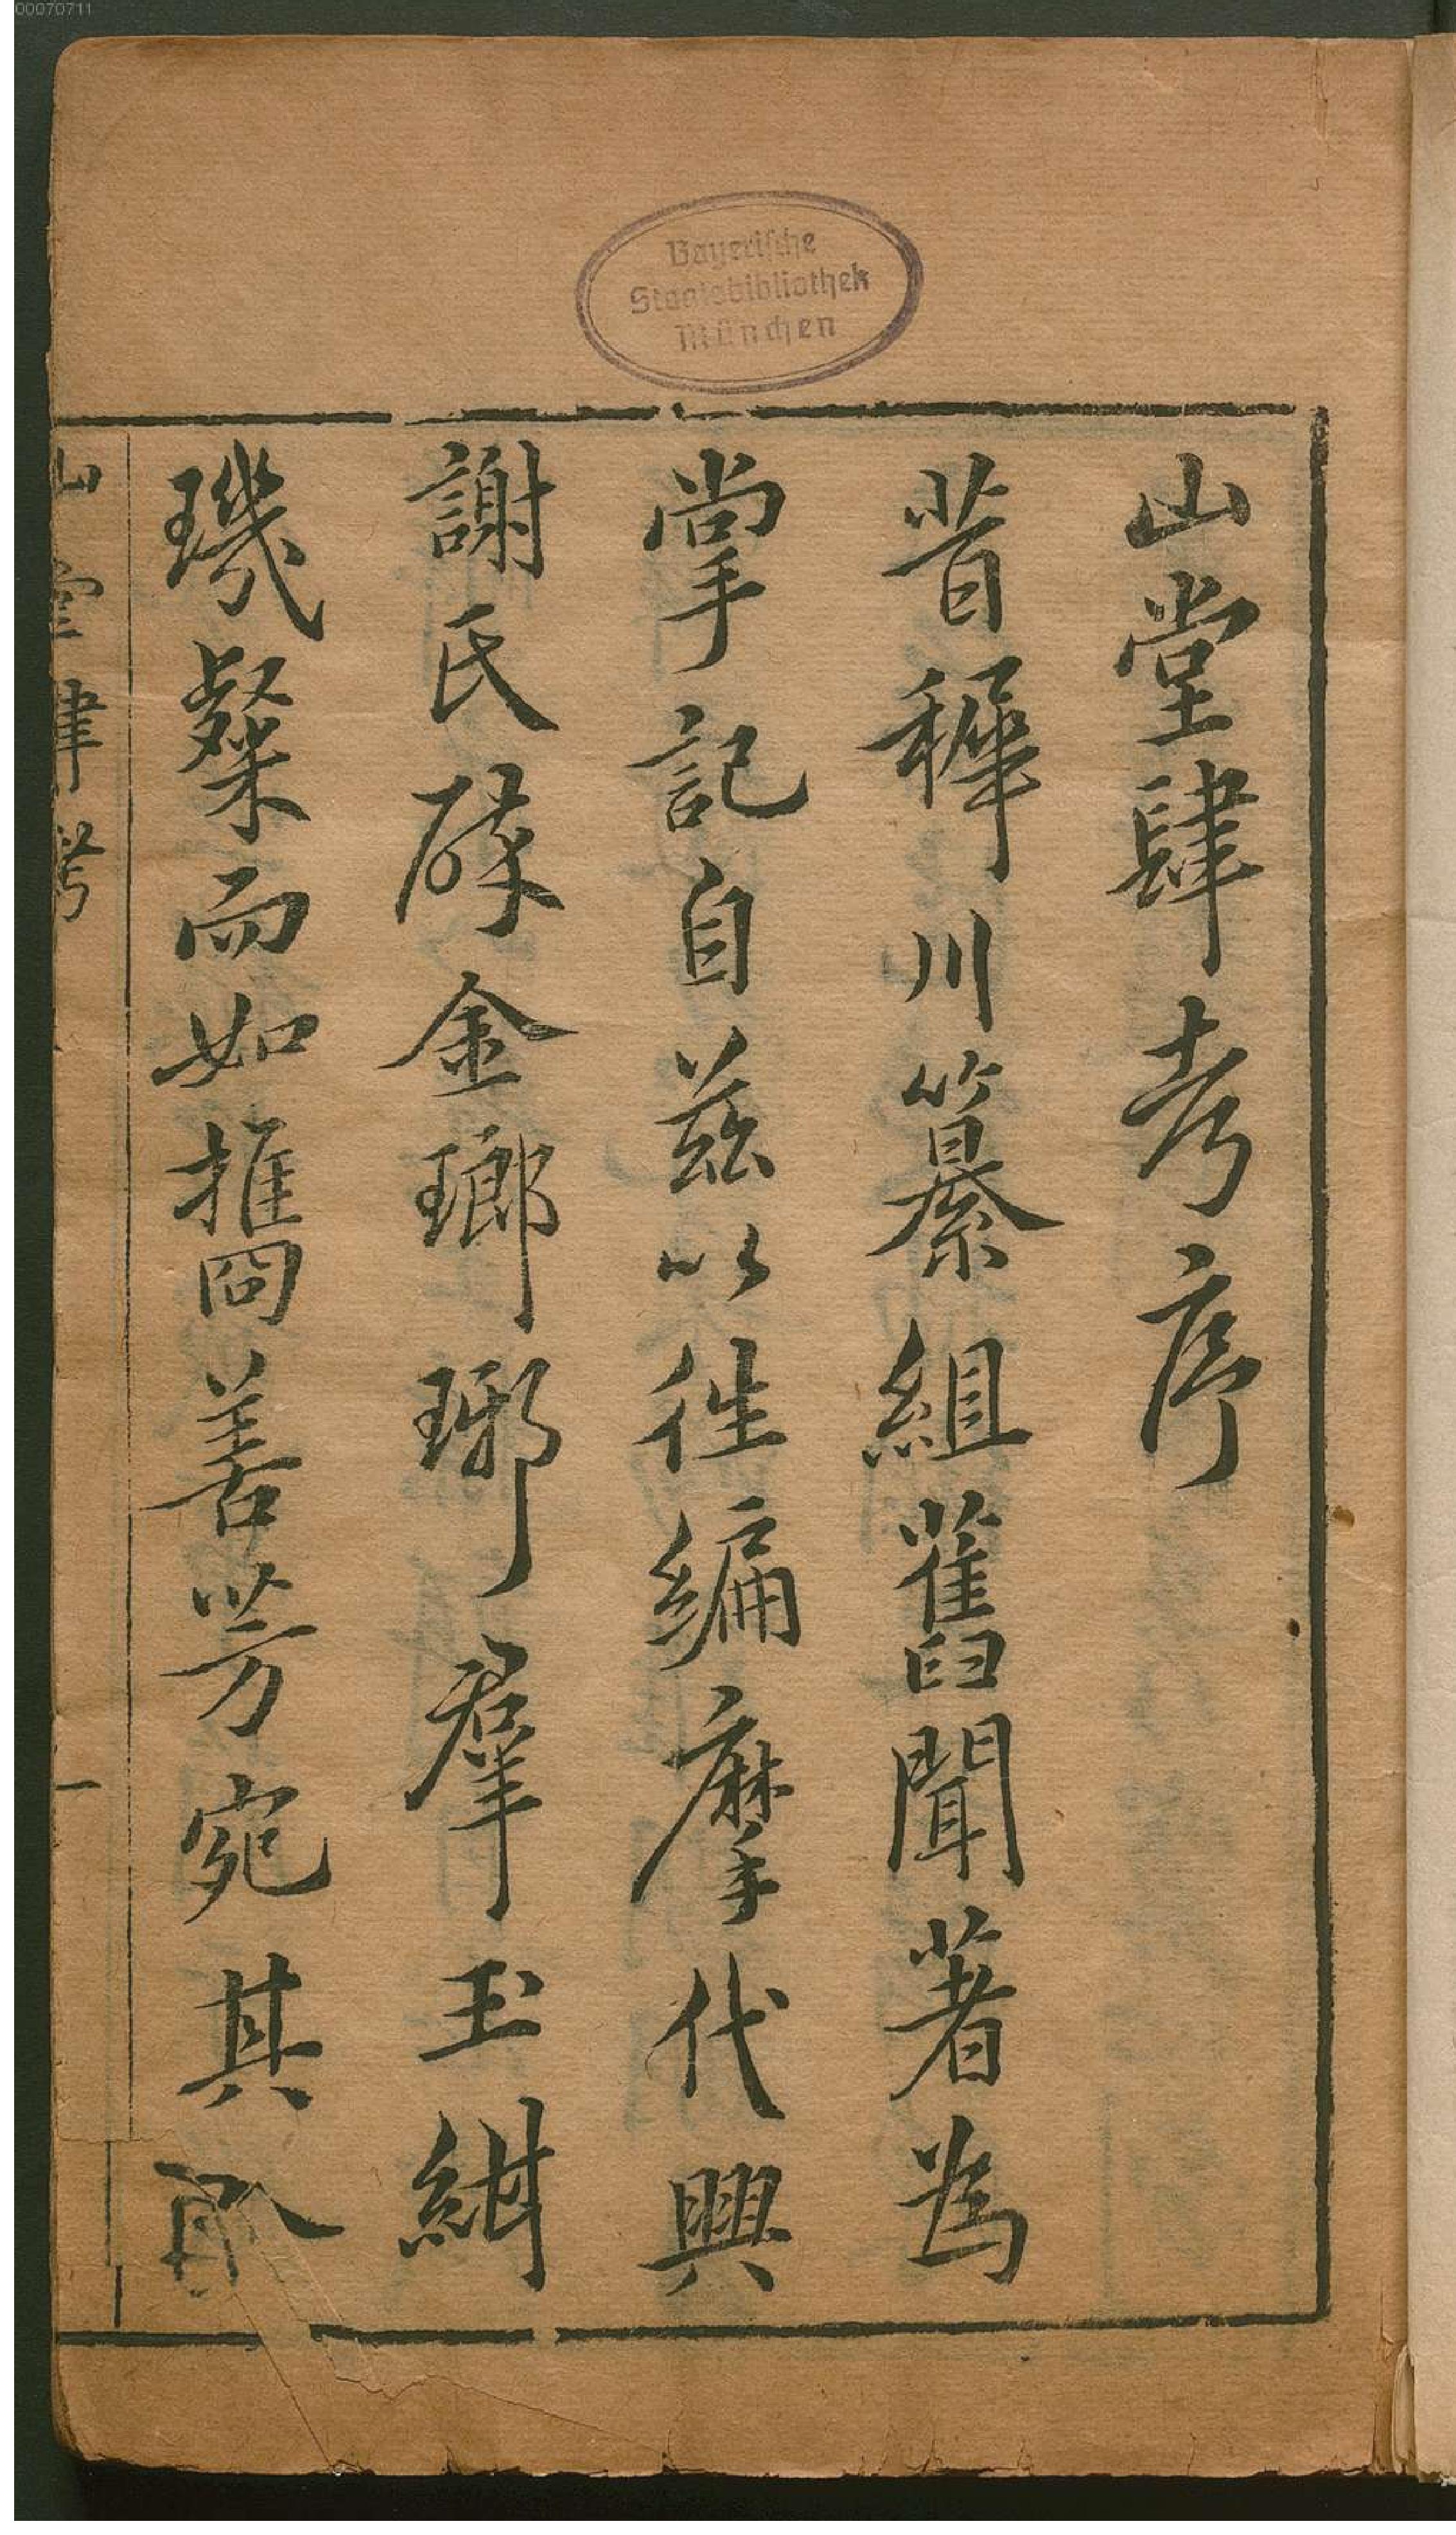 00070711
Bayerische
Staatsbibliothek
München
山堂肆考序
昔穉川纂組舊聞著為
掌記自茲以徃編摩代興
謝氏碎金瑯琊羣玉紺
璣粲而如搉囧善芳宛其
山堂肆考
一